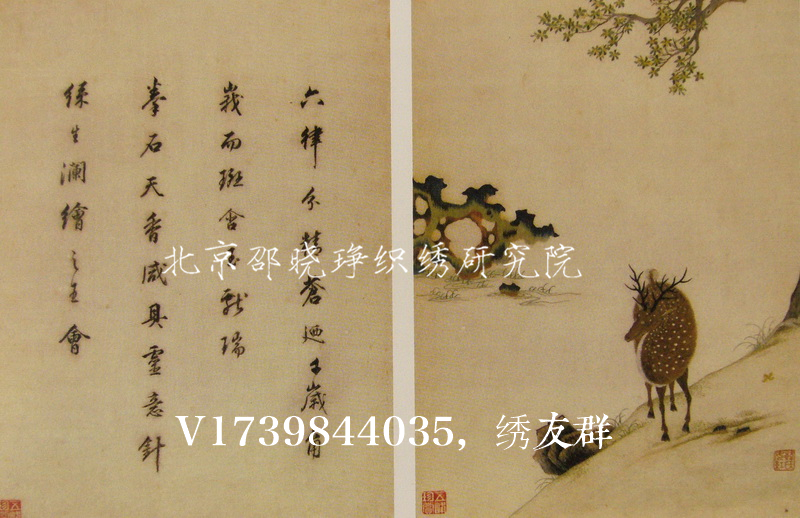 六律分精蒼迺千歲角
峩而斑含玉獻瑞
拳石天香咸具靈意針
絲生瀾繪之王會
北京邵晓琤织绣研究院
V1739844035，绣友群